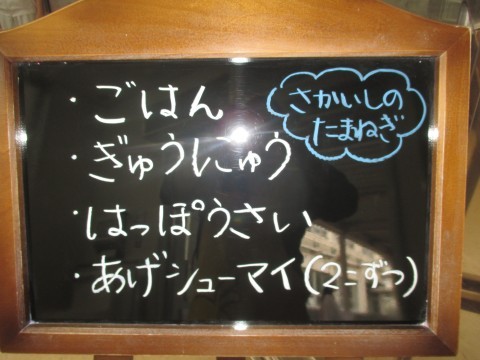 ・ごはん
・ぎゅうにゅう
・はっぽうさい
・あげシューマイ(2こずつ)
さかいしの
たまねぎ